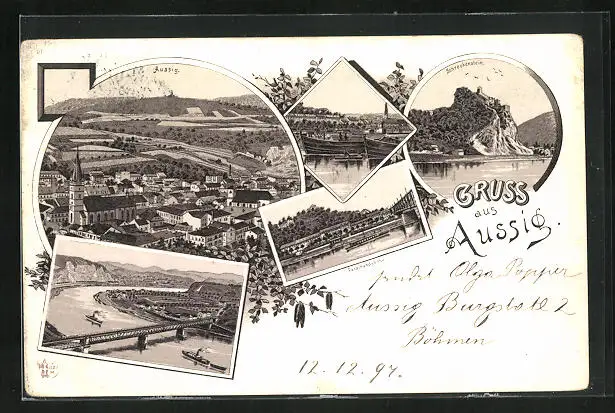 Aussig.
Schreckenstein.
GRUSS
aus
Aussig.
sendet Olga Popper
Aussig Burgstadl 2
Böhmen
12.12.97.